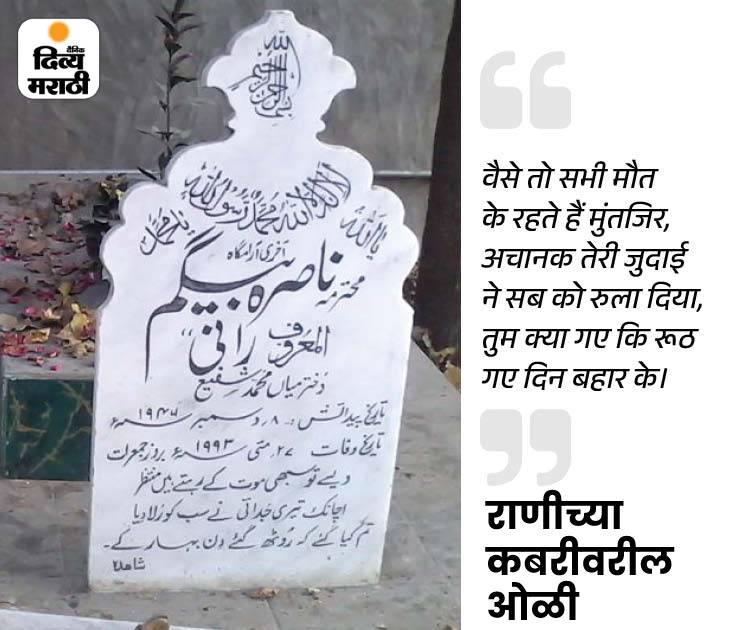 दैनिक
दिव्य
मराठी
بسم الله الرحمن الرحيم
لا اله الا الله محمد رسول الله
يا الله
يا محمد
آخری آرامگاہ
محترمہ ناصرہ بیگم
المعروف "رانی"
دختر میاں محمد شفیع
تاریخ پیدائش :۔ ۸؍ دسمبر ۱۹۴۶ء
تاریخ وفات ۲۷؍ مئی ۱۹۹۳ء بروز جمعرات
ویسے تو سبھی موت کے رہتے ہیں منتظر
اچانک تیری جُدائی نے سب کو رُلا دیا
تم کیا گئے کہ رُوٹھ گئے دن بہار کے۔
वैसे तो सभी मौत
के रहते हैं मुंतजिर,
अचानक तेरी जुदाई
ने सब को रुला दिया,
तुम क्या गए कि रूठ
गए दिन बहार के।
राणीच्या
कबरीवरील
ओळी